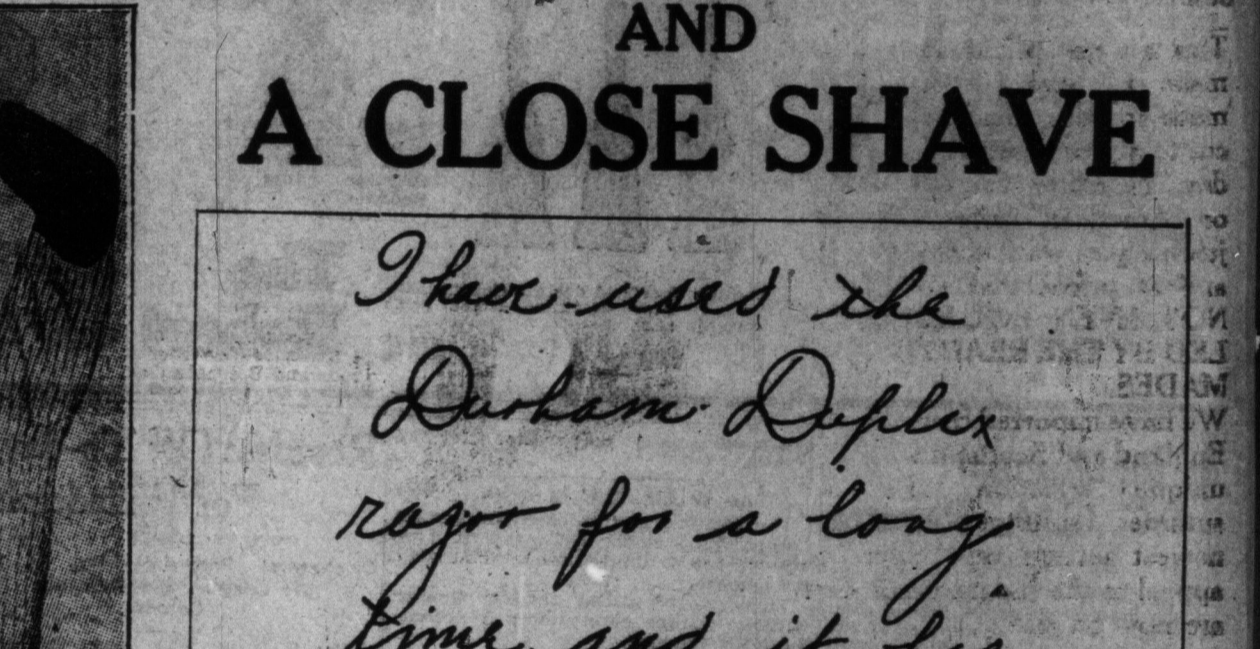 AND
A CLOSE SHAVE
I have used the
Durham Duplex
razor for a long
time and it has